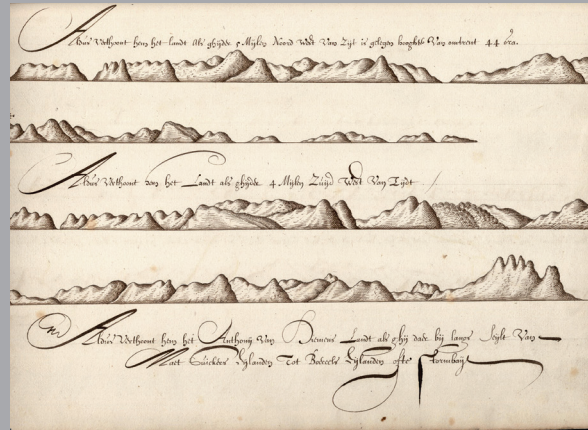 Aldus verthoont hem het landt als ghijder Mijlen Noord West van Zijt is gelegen hooghte van omtrent 44 gra.
Aldus verthoont hem het Landt als ghijder 4 Mijlen Zuijd West van Zijt
Aldus verthoont hem het Anthonij Van Diemens Landt als ghij daer bij langs seijlt Van
Maet Suickers Eijlanden Tot Boreels Eijlanden ofte Stormbaij